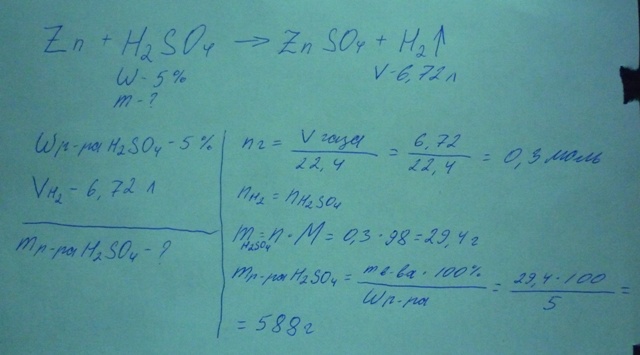 Zn + H₂SO₄ → ZnSO₄ + H₂↑
W - 5% V - 6,72 л
m - ?
Wр-ра H₂SO₄ - 5%
VH₂ - 6,72 л
mр-ра H₂SO₄ - ?
nг = Vгаза / 22,4 = 6,72 / 22,4 = 0,3 моль
nH₂ = nH₂SO₄
mH₂SO₄ = n · M = 0,3 · 98 = 29,4 г
mр-ра H₂SO₄ = mв-ва · 100% / Wр-ра = 29,4 · 100 / 5 =
= 588 г